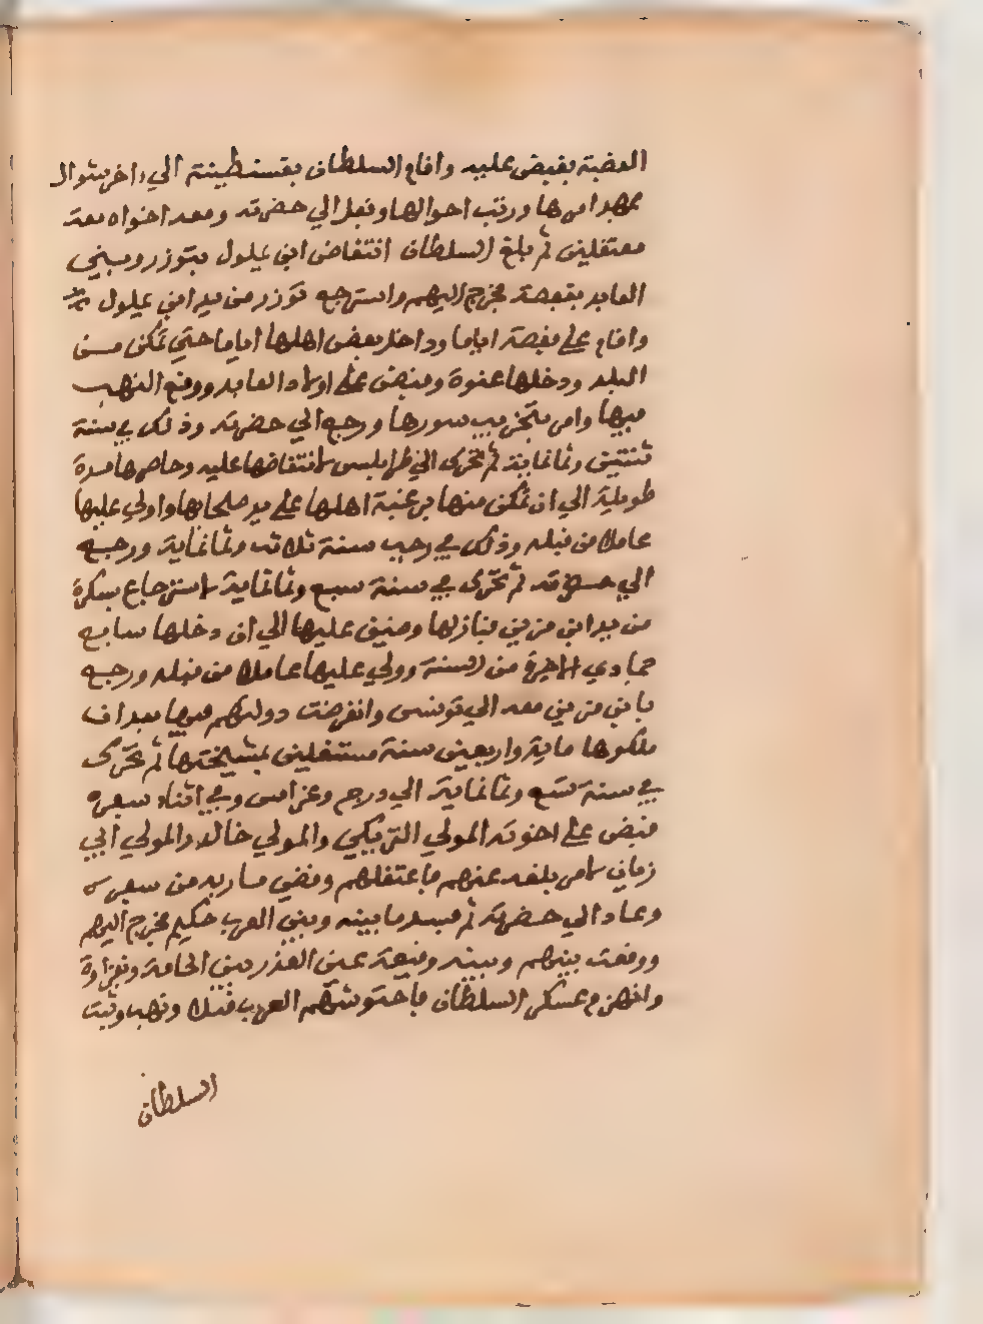 القصبة بقبض عليه واقام السلطان بقسنطينة الي اخر شوال
مهد امرها ورتب احوالها وقفل الي حضرته ومعه اخواه معه
معتقلين ثم بلغ السلطان انتقاض ابن يملول بتوزر وبيني
العابد بقفصة فخرج اليهم واسترجع توزر من يد ابن يملول
واقام علي قفصة اياما وداخل بعض اهلها اياما حتي تمكن من
البلد ودخلها عنوة وقبض علي اولاد العابد ووقع النهب
فيها وامر بتخريب سورها ورجع الي حضرته وذلك في سنة
ثنتين وثمانماية ثم تحرك الي طرابلس لانتقاضها عليه وحاصرها مدة
طويلة الي ان تمكن منها برغبة اهلها علي يد صلحايها واولي عليها
عاملا من قبله وذلك في رجب سنة ثلاث وثمانماية ورجع
الي حضرته ثم تحرك في سنة سبع وثمانماية لاسترجاع بسكرة
من يد ابن مزني فنازلها وضيق عليها الي ان دخلها سابع
جمادي الاخرة من السنة وولي عليها عاملا من قبله ورجع
بابن مزني معه الي تونس وانقرضت دولتهم فيها بعد ان
ملكوها ماية واربعين سنة مستقلين بمشيختها ثم تحرك
في سنة تسع وثمانماية الي درج وغدامس وفي اثناء سفره
قبض علي اخوته المولي التريكي والمولي خالد والمولي ابي
زيان لامر بلغه عنهم فاعتقلهم وقضي مئاربه من سفره
وعاد الي حضرته ثم فسد ما بينه وبين العرب حكيم فخرج اليهم
ووقعت بينهم وبينه وقيعة عين الغدر بين الحامة ونفزاوة
وانهزم عسكر السلطان فاحتوشهم العرب قتلا ونهبا وثبت
السلطان